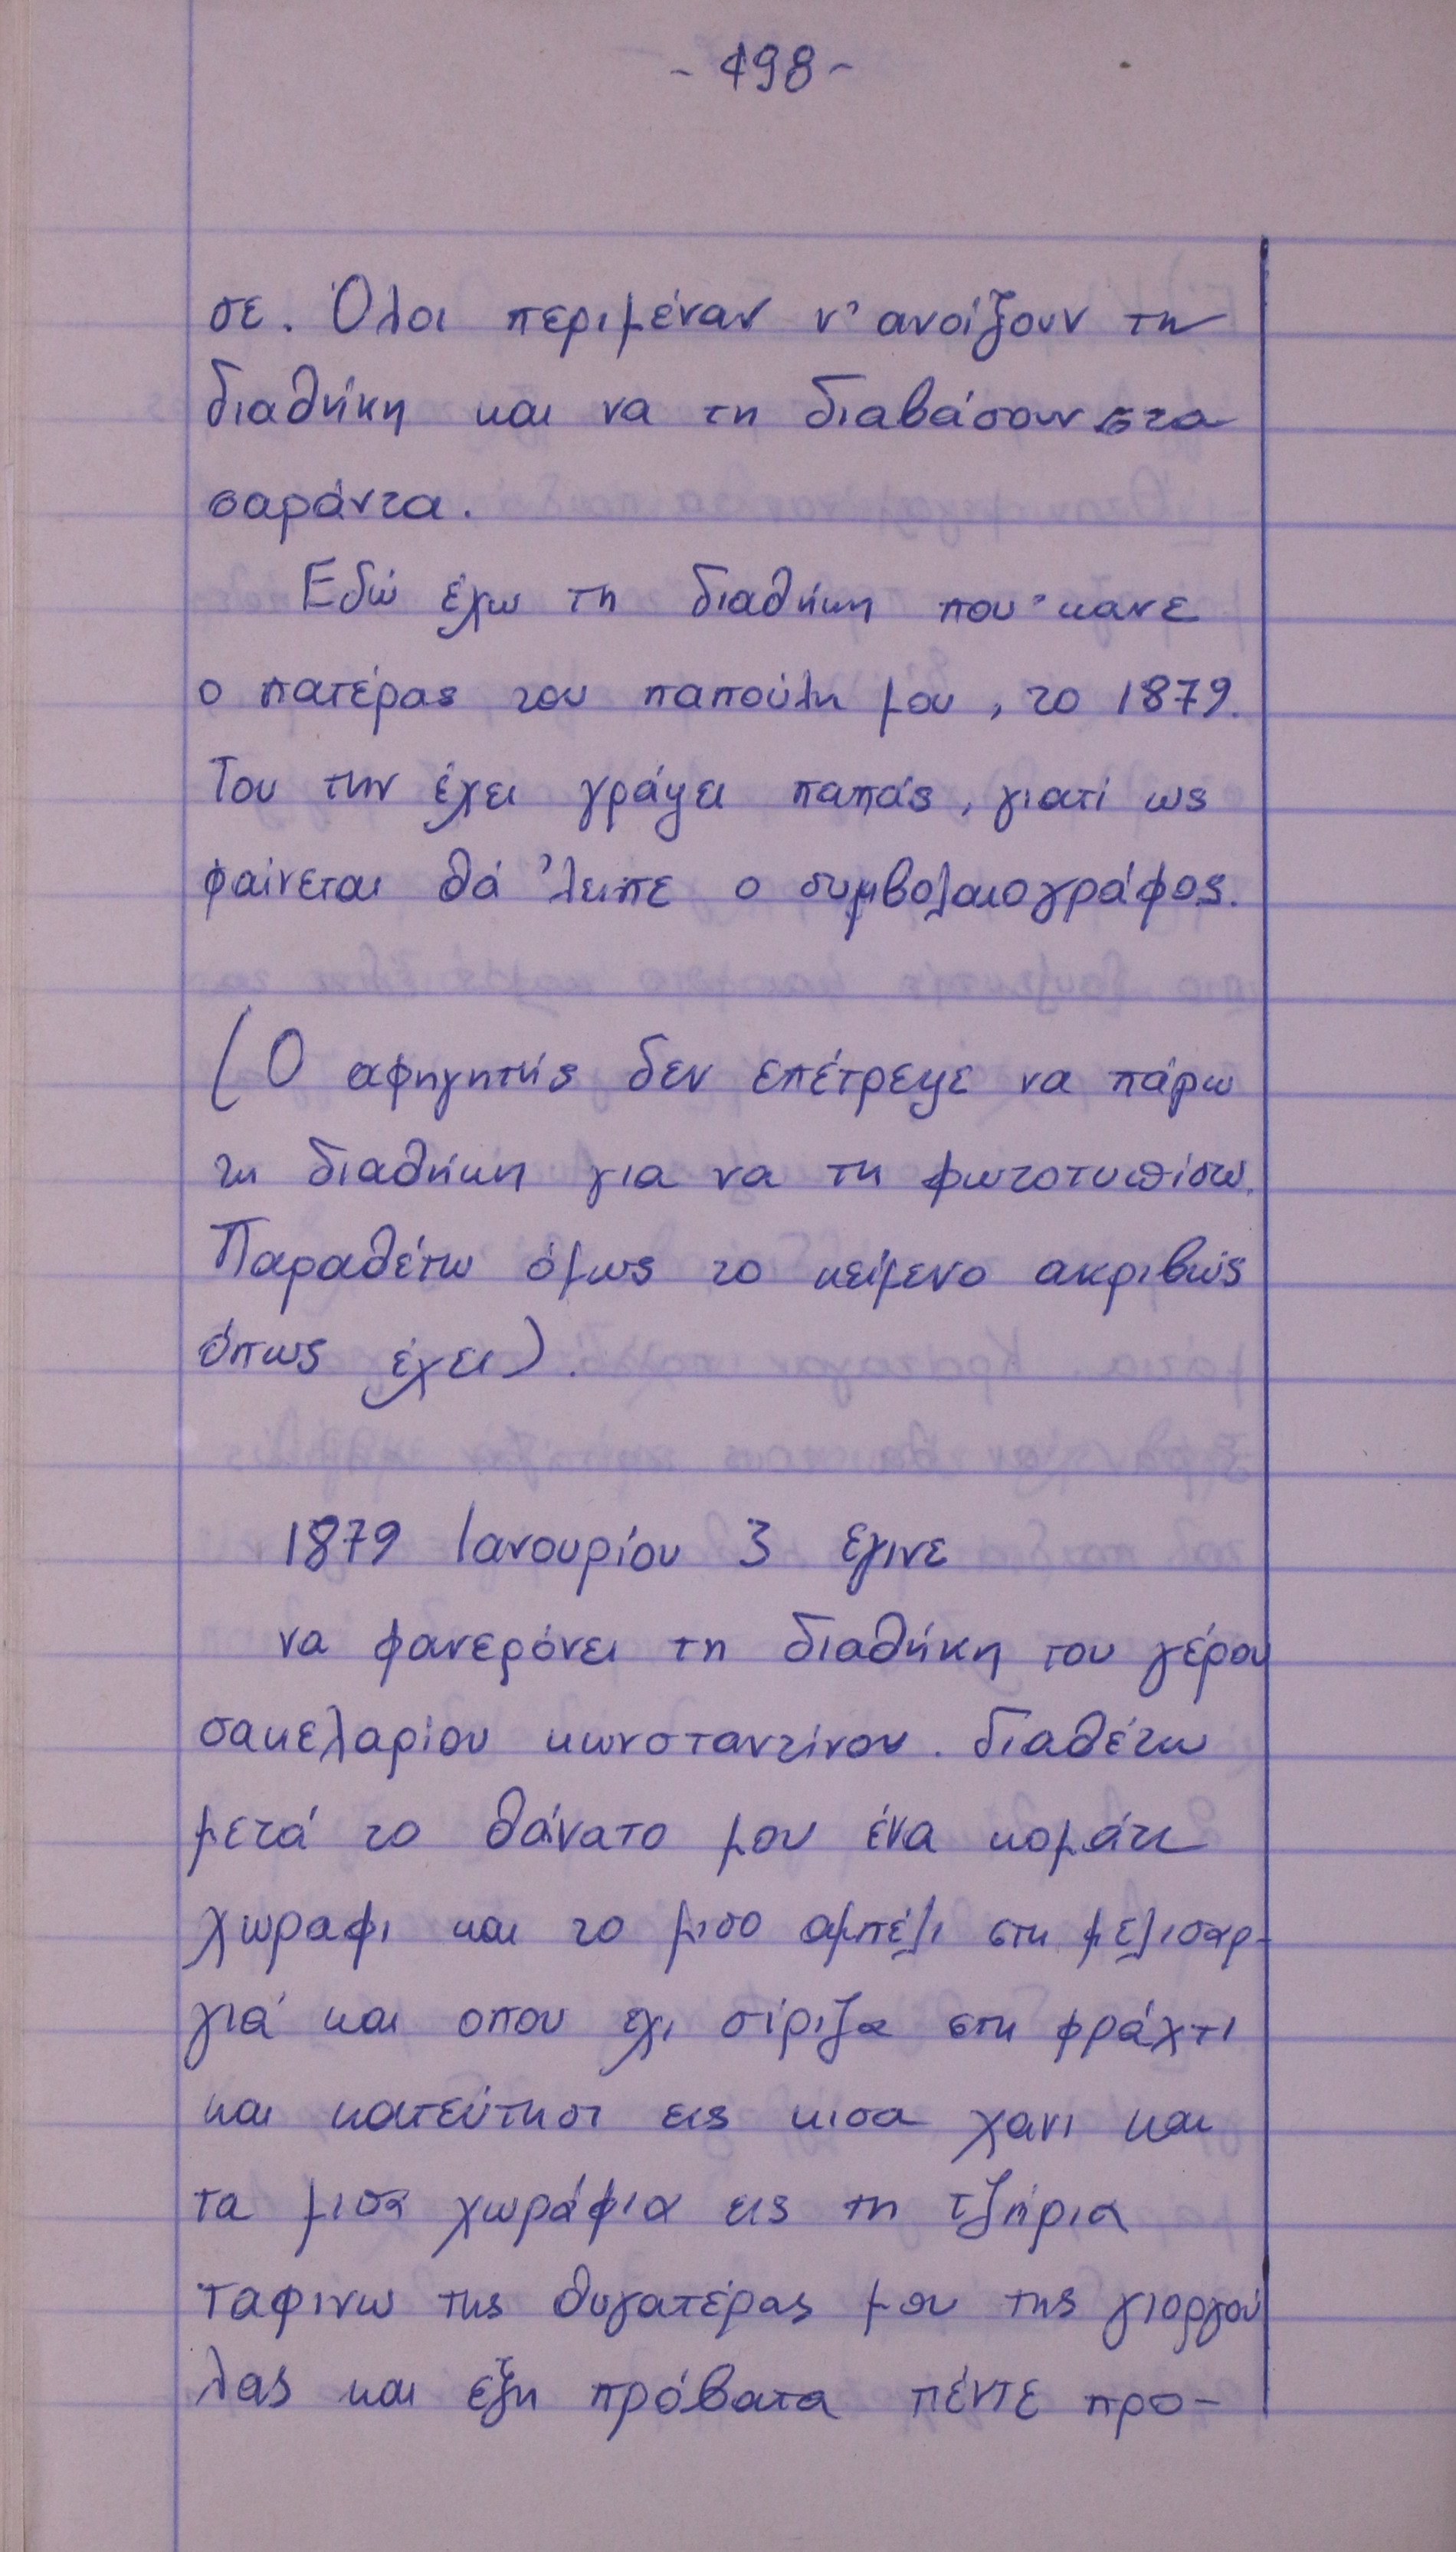 - 498 -
σε. Όλοι περιμέναν ν' ανοίξουν τη
διαθήκη και να τη διαβάσουν στα
σαράντα.
Εδώ έχω τη διαθήκη που 'κανε
ο πατέρας του παπούλη μου, το 1879.
Του την έχει γράψει παπάς, γιατί ως
φαίνεται θά 'λειπε ο συμβολαιογράφος.
(Ο αφηγητής δεν επέτρεψε να πάρω
τη διαθήκη για να τη φωτοτυπίσω.
Παραθέτω όμως το κείμενο ακριβώς
όπως έχει).
1879 Ιανουρίου 3 εγινε
να φανερόνει τη διαθήκη του γέρου
σακελαρίου κωνσταντίνου. διαθέτω
μετά το θάνατο μου ένα κομάτι
χωραφι και το μισο αμπέλι στη μελισαρ-
γιά και οπου εχι σίριζα στη φράχτι
και κατεύτησι εις κισα χανι και
τα μισά χωράφια εις τη τζήρια
ταφινω της θυγατέρας μου της γιοργού
λας και έξη πρόβατα πέντε προ-